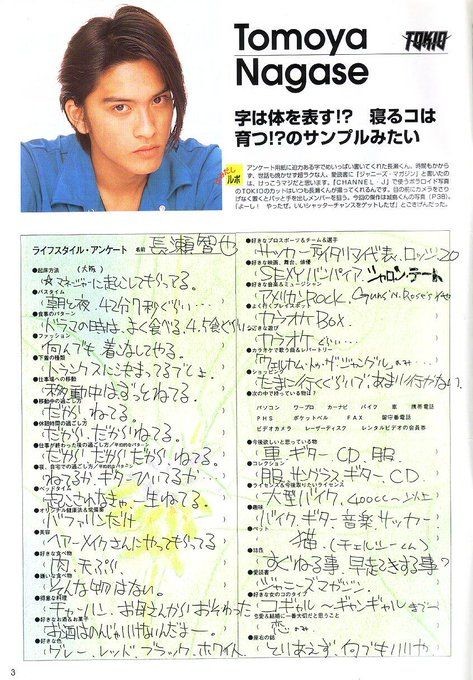 Tomoya
Nagase
TOKIO
字は体を表す!?　寝るコは
育つ!?のサンプルみたい
ルポ
アンケート用紙に迫力ある字でめいっぱい書いてくれた長瀬くん。時間もかから
ず、世話も焼かせず超ラクな人。愛読書に『ジャニーズ・マガジン』と書いたの
は、けっこうマジだと思います。『CHANNEL・J』で使うポラロイド写真
のTOKIOのカットはいつも長瀬くんが撮ってくれるんです。目の前にカメラをさり
げなく置くとパッと手を出しメンバーを狙う。今回の傑作は城島くんの写真(P38)。
「よーし!　やったぜ。いいシャッターチャンスをゲットしたぜ」とごきげんだった。
ライフスタイル・アンケート 名前 長瀬智也
●起床方法 (大阪)
☆マネージャーに起こしてもらってる。
●バスタイム
朝と夜、42分7秒ぐらい…
●食事のパターン
ドラマの時は、よく食べる。4.5食ぐらい
●ファッション
何んでも着こなしてやる。
●下着の種類
トランクスに決まってるでしょ。
●仕事場への移動
移動中はずっとねてる。
●移動中の過ごし方
だから、ねてる。
●休憩時間の過ごし方
だから、だからいねてる。
だから!だから!だからねてる。
●夜、自宅での過ごし方
ねてるか、ギターひいてるか
●ベッドタイム
起こされなきゃ一生ねてる。
●オリジナル健康法&常備薬
バファリンだけ
●美容
ヘアーメイクさんにやってもらってる
●好きな食べ物
肉、天ぷら、
●嫌いな食べ物
そんな物はない。
●得意な料理
チャーハン、お母さんからおそわった
●好きなお酒&お菓子
お酒はのんじゃいけないんだよー。
●好きな色
グレー、レッド、ブラック、ホワイト
●好きなプロスポーツ&チーム&選手
サッカー、イタリア代表、ロッシ、20
●好きな映画、舞台、俳優
SEXYバンパイア、シャロン・テート
●好きな音楽&ミュージシャン
アメリカンROCK、GUNS'N'ROSES
●よく行くプレイスポット
カラオケBOX.
●好きな遊び
カラオケ
●カラオケで歌う曲&レパートリー
「ウェルカム・トゥ・ザ・ジャングル」
●ショッピング
たまに行くぐらいで、あまり行かない。
●次の中で持っている物は?
パソコン　ワープロ　カーナビ　バイク　車　携帯電話
PHS　ポケットベル　FAX　留守番電話
ビデオカメラ　レーザーディスク　レンタルビデオの会員証
●今後欲しいと思っている物
車、ギター、CD、服
●コレクション
服、サングラス、ギター、CD
●ライセンス&今後取りたいライセンス
大型バイク、400cc〜以上
●趣味
バイク、ギター、音楽、サッカー
●ペット
猫、(チェルシーくん)
●特技
すぐねる事、早起きする事?
●愛読書
ジャニーズマガジン。
●好きな女のコのタイプ
コギャル〜ギャンギャルまで
●今恋愛&結婚一番大切だと思うこと
恋
●座右の銘
とりあえず、何でもいいや
3